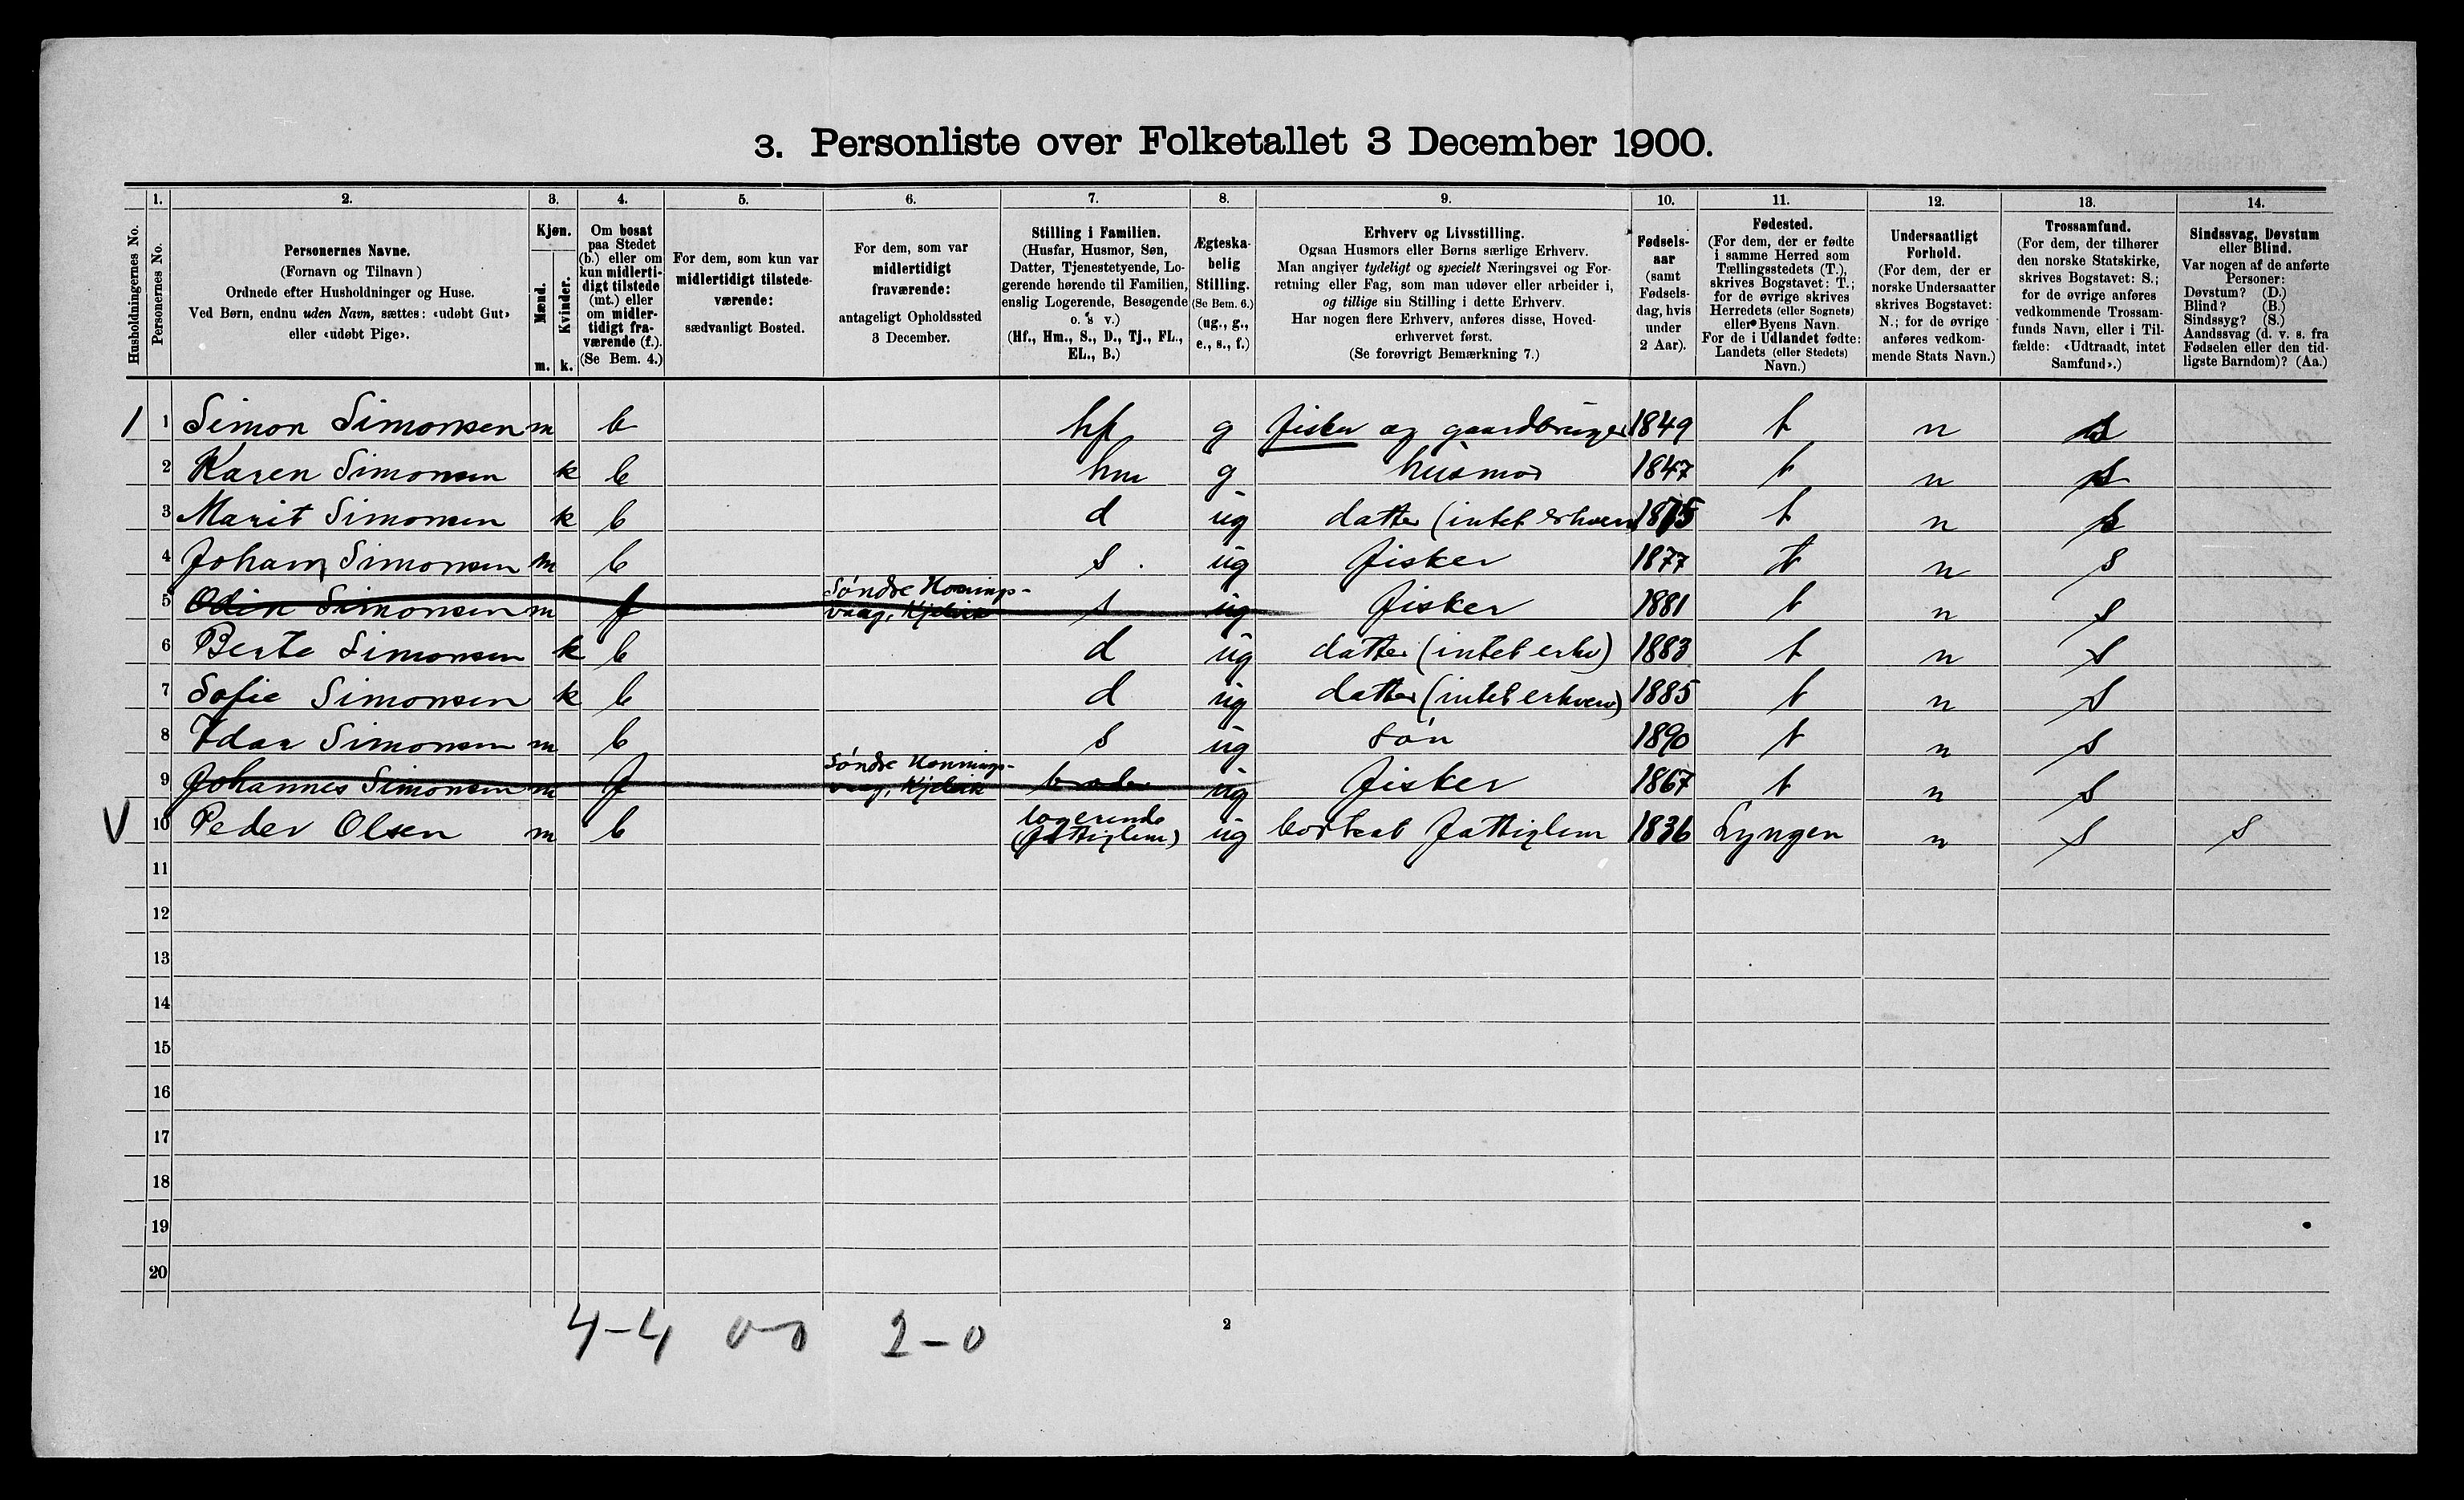 3. Personliste over Folketallet 3 December 1900.
Husholdningernes No.
1.
Personernes No.
2.
Personernes Navne.
(Fornavn og Tilnavn)
Ordnede efter Husholdninger og Huse.
Ved Børn, endnu uden Navn, sættes: «udøbt Gut»
eller «udøbt Pige».
3.
Kjøn.
Mænd.
m.
Kvinder.
k.
4.
Om bosat
paa Stedet
(b.) eller om
kun midlerti-
digt tilstede
(mt.) eller
om midler-
tidigt fra-
værende (f.).
(Se Bem. 4.)
5.
For dem, som kun var
midlertidigt tilstede-
værende:
sædvanligt Bosted.
6.
For dem, som var
midlertidigt
fraværende:
antageligt Opholdssted
3 December.
7.
Stilling i Familien.
(Husfar, Husmor, Søn,
Datter, Tjenestetyende, Lo-
gerende hørende til Familien,
enslig Logerende, Besøgende
o. s. v.)
(Hf., Hm., S., D., Tj., FL.,
EL., B.)
8.
Ægteska-
belig
Stilling.
(Se Bem. 6.)
(ug., g.,
e., s., f.)
9.
Erhverv og Livsstilling.
Ogsaa Husmors eller Børns særlige Erhverv.
Man angiver tydeligt og specielt Næringsvei og For-
retning eller Fag, som man udøver eller arbeider i,
og tillige sin Stilling i dette Erhverv.
Har nogen flere Erhverv, anføres disse, Hoved-
erhvervet først.
(Se forøvrigt Bemærkning 7.)
10.
Fødsels-
aar
(samt
Fødsels-
dag, hvis
under
2 Aar).
11.
Fødested.
(For dem, der er fødte
i samme Herred som
Tællingsstedets (T.),
skrives Bogstavet: T.;
for de øvrige skrives
Herredets (eller Sognets)
eller Byens Navn.
For de i Udlandet fødte:
Landets (eller Stedets)
Navn.)
12.
Undersaatligt
Forhold.
(For dem, der er
norske Undersaatter
skrives Bogstavet:
N.; for de øvrige
anføres vedkom-
mende Stats Navn.)
13.
Trossamfund.
(For dem, der tilhører
den norske Statskirke,
skrives Bogstavet: S.;
for de øvrige anføres
vedkommende Trossam-
funds Navn, eller i Til-
fælde: «Udtraadt, intet
Samfund».)
14.
Sindssvag, Døvstum
eller Blind.
Var nogen af de anførte
Personer:
Døvstum? (D.)
Blind? (B.)
Sindssyg? (S.)
Aandssvag (d. v. s. fra
Fødselen eller den tid-
ligste Barndom)? (Aa.)
1 1 Simon Simonsen m b hf g fisker og gaardbruger 1849 t n s
2 Karen Simonsen k b hm g husmor 1847 t n s
3 Marit Simonsen k b d ug datter (intet erhverv) 1875 t n s
4 Johan Simonsen m b s. ug fisker 1877 t n s
5 Odin Simonsen m f Søndre Honnings-
vaag, Kjelvik s ug fisker 1881 t n s
6 Berte Simonsen k b d ug datter (intet erhv) 1883 t n s
7 Sofie Simonsen k b d ug datter (intet erhverv) 1885 t n s
8 Idar Simonsen m b s ug søn 1890 t n s
9 Johannes Simonsen m f Søndre Honnings-
vaag, Kjelvik broder ug fisker 1867 t n s
V 10 Peder Olsen m b logerende
(fattiglem) ug bortsat fattiglem 1836 Lyngen n s s
11
12
13
14
15
16
17
18
19
20
4-4 0-0 2-0
2